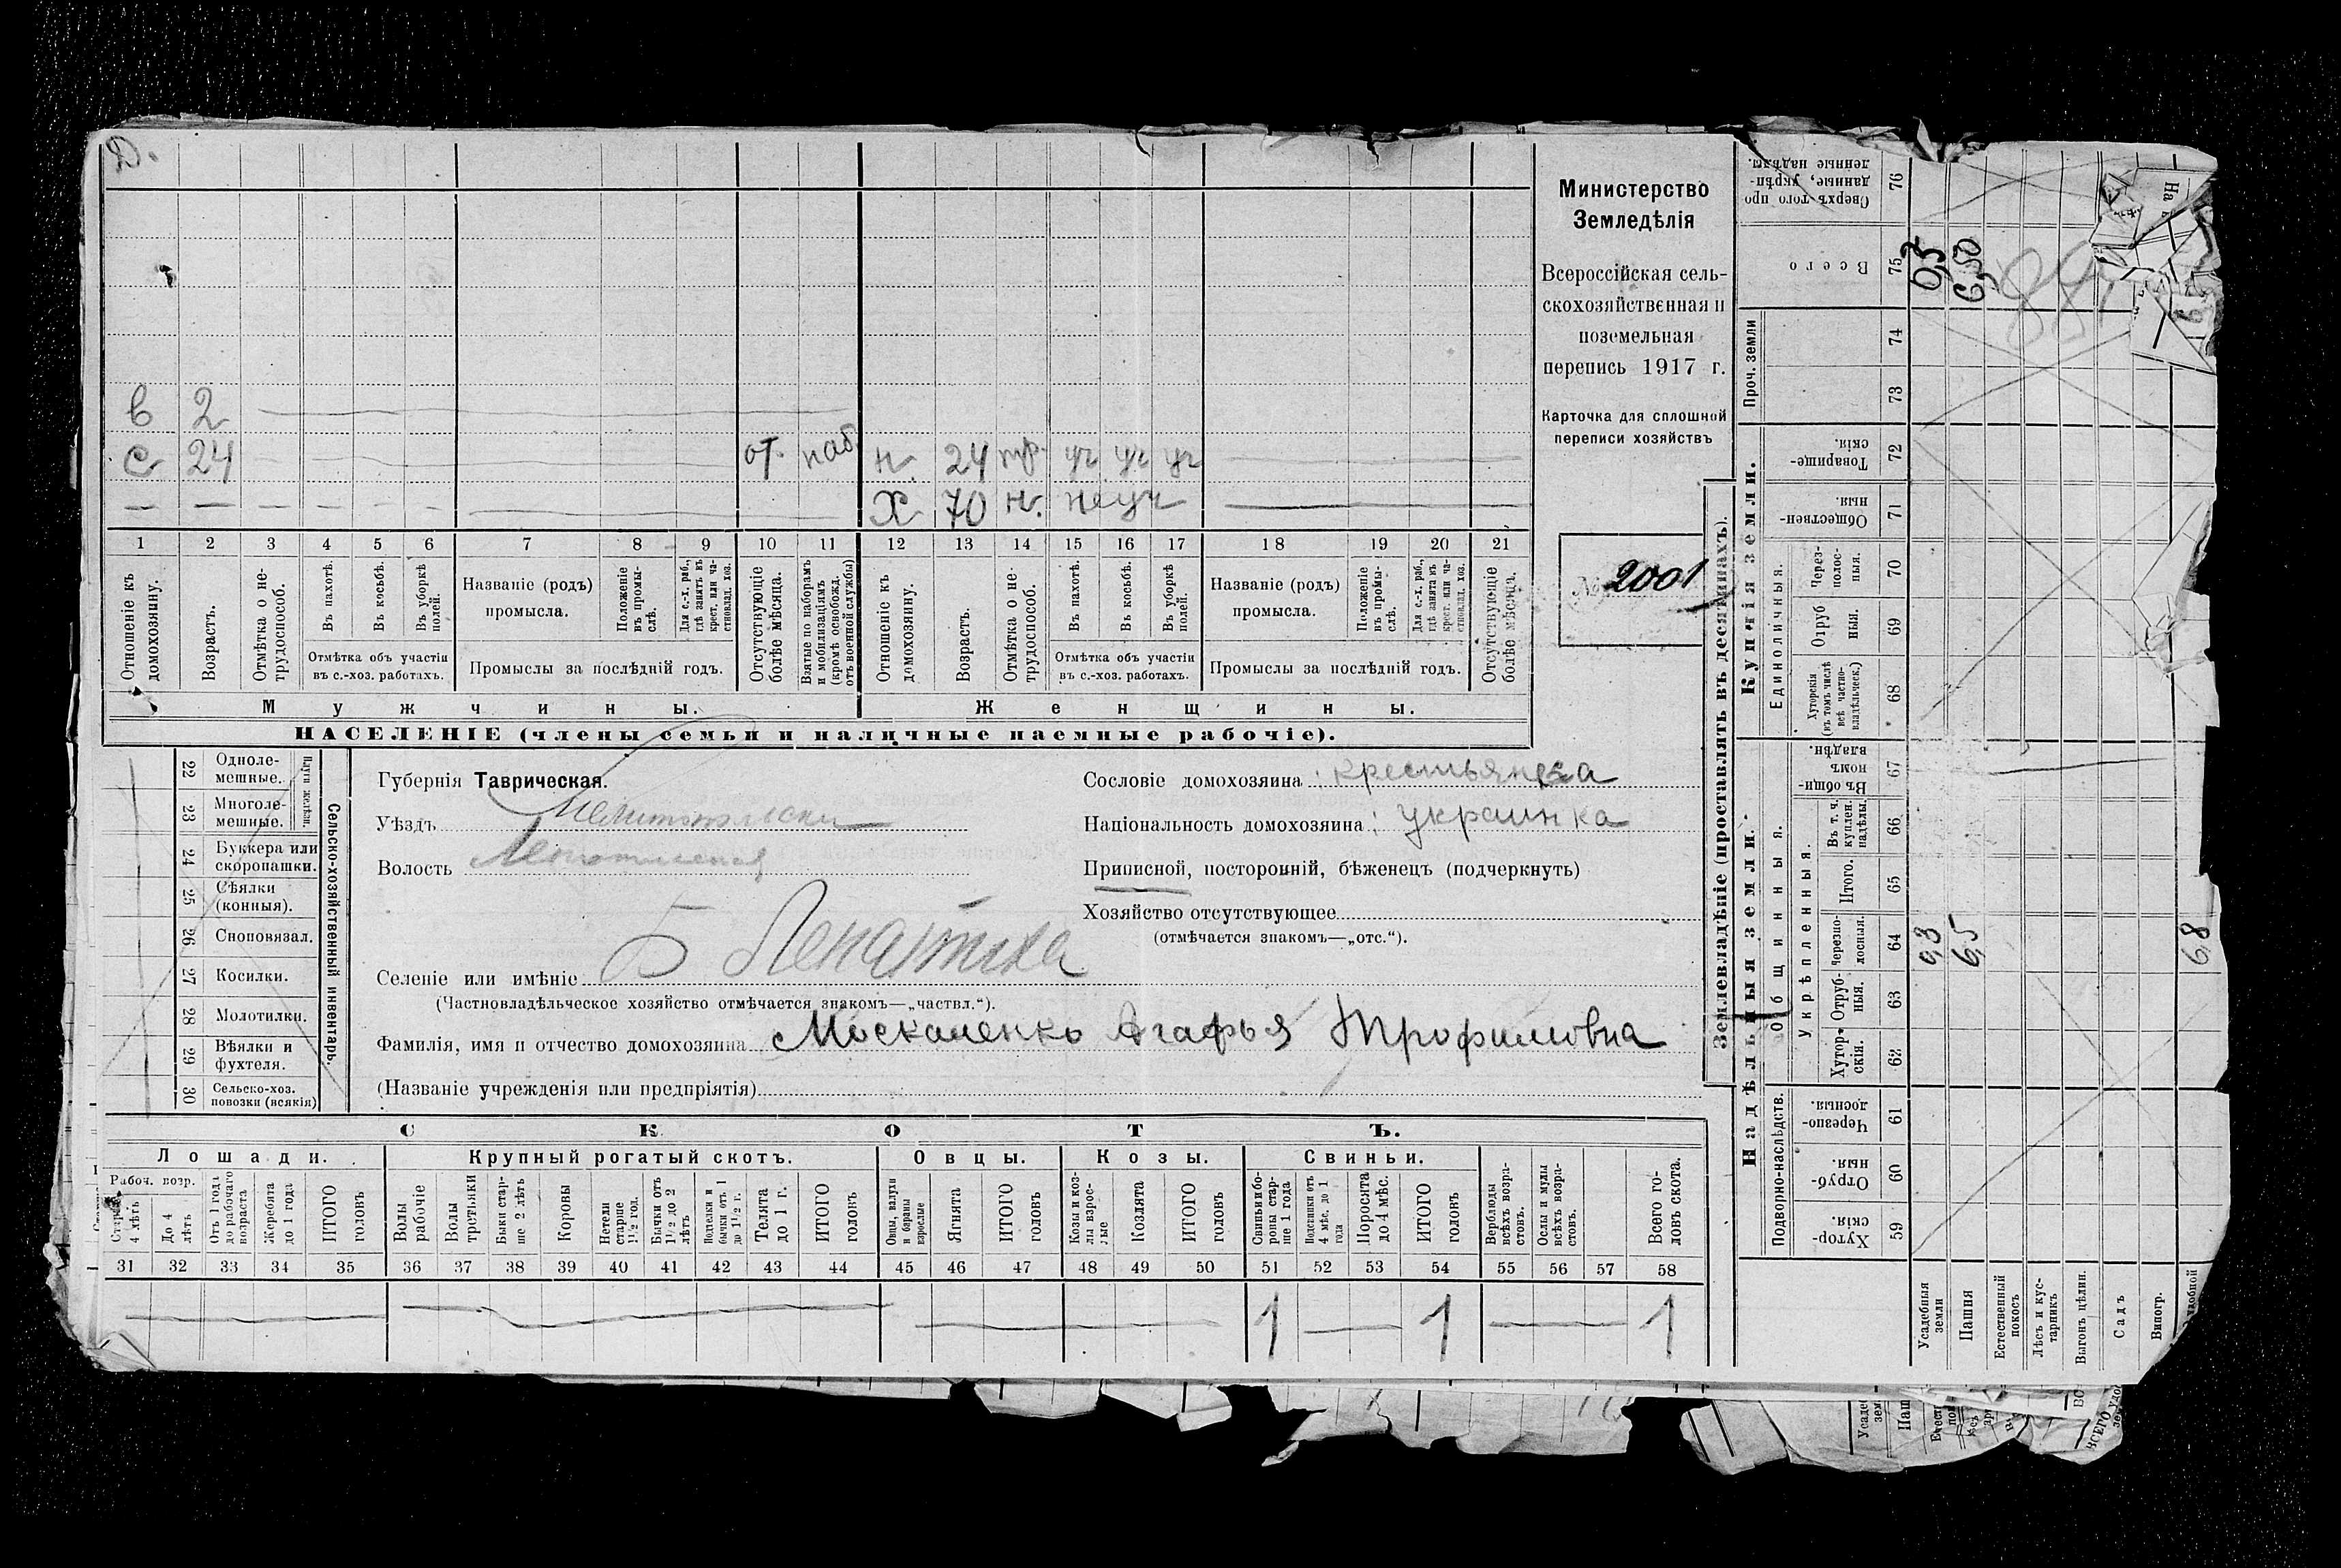 Д.
в 2
с 24 от. наб. н. 24 тр. уч уч уч
Х 70 н. неуч
1 2 3 4 5 6 7 8 9 10 11 12 13 14 15 16 17 18 19 20 21
Отношеніе къ домохозяину.
Возрастъ.
Отмѣтка о нетрудоспособ.
Въ пахотѣ.
Въ косьбѣ.
Въ уборкѣ полей.
Отмѣтка объ участіи
въ с.-хоз. работахъ.
Названіе (родъ)
промысла.
Положеніе въ промыслѣ.
Для с.-х. раб., гдѣ занятъ въ крест. или частновлад. хоз.
Промыслы за послѣдній годъ.
Отсутствующіе болѣе мѣсяца.
Взятые по наборамъ и мобилизаціямъ (кромѣ освобожд. отъ военной службы)
Отношеніе къ домохозяину.
Возрастъ.
Отмѣтка о нетрудоспособ.
Въ пахотѣ.
Въ косьбѣ.
Въ уборкѣ полей.
Отмѣтка объ участіи
въ с.-хоз. работахъ.
Названіе (родъ)
промысла.
Положеніе въ промыслѣ.
Для с.-х. раб., гдѣ занята въ крест. или частновлад. хоз.
Промыслы за послѣдній годъ.
Отсутствующіе болѣе мѣсяца.
Мужчины. Женщины.
НАСЕЛЕНІЕ (члены семьи и наличные наемные рабочіе).
Министерство
Земледѣлія
Всероссійская сель-
скохозяйственная и
поземельная
перепись 1917 г.
Карточка для сплошной
переписи хозяйствъ
№ 2001
22 Одноле-
мешные.
23 Многоле-
мешные.
Плуги желѣзн.
24 Буккера или
скоропашки.
25 Сѣялки
(конныя).
26 Сноповязал.
27 Косилки.
28 Молотилки.
29 Вѣялки и
фухтеля.
30 Сельско-хоз.
повозки (всякія)
Сельско-хозяйственный инвентарь.
Губернія Таврическая.
Уѣздъ Мелитопольскій
Волость Лепатихская
Селеніе или имѣніе Б Лепатиха
(Частновладѣльческое хозяйство отмѣчается знакомъ—„частвл.“).
Фамилія, имя и отчество домохозяина Москаленко Агафья Трофимовна
(Названіе учрежденія или предпріятія)
Сословіе домохозяина: крестьянка
Національность домохозяина: украинка
Приписной, посторонній, бѣженецъ (подчеркнуть)
Хозяйство отсутствующее
(отмѣчается знакомъ—„отс.“).
СКОТЪ.
Лошади. Крупный рогатый скотъ. Овцы. Козы. Свиньи.
Рабоч. возр.
Старше 4 лѣтъ
До 4 лѣтъ
Отъ 1 года до рабочаго возраста
Жеребята до 1 года
ИТОГО головъ
Волы рабочіе
Волы третьяки
Быки старше 2 лѣтъ
Коровы
Нетели старше 1½ год.
Бычки отъ 1½ до 2 лѣтъ
Подтелки и бычки отъ 1 до 1½ г.
Телята до 1 г.
ИТОГО головъ
Овцы, валухи и бараны взрослые
Ягнята
ИТОГО головъ
Козы и козлы взрослые
Козлята
ИТОГО головъ
Свиньи и бороны старше 1 года
Подсвинки отъ 4 мѣс. до 1 года
Поросята до 4 мѣс.
ИТОГО головъ
Верблюды всѣхъ возрастовъ.
Ослы и мулы всѣхъ возрастовъ.
Всего головъ скота.
31 32 33 34 35 36 37 38 39 40 41 42 43 44 45 46 47 48 49 50 51 52 53 54 55 56 57 58
1 1 1
Землевладѣніе (проставлять въ десятинахъ).
Надѣльныя земли. Купчія земли.
Подворно-наслѣдств. Общинныя. Единоличныя. Проч. земли
Укрѣпленныя.
Хуторскія. 59
Отрубныя. 60
Черезполосныя. 61
Хуторскія. 62
Отрубныя. 63
Черезполосныя. 64
Итого. 65
Въ т. ч. куплен. надѣлы. 66
Въ общинномъ владѣн. 67
Хуторскія (въ томъ числѣ всѣ частновладѣльческ.) 68
Отрубныя. 69
Черезполосныя. 70
Общественныя. 71
Товарищескія. 72
73
74
Всего 75
Сверхъ того проданные, укрѣпленные надѣлы. 76
Усадебныя земли 0,3 0,3
Пашня 6,5 6,50
Естественный покосъ
Лѣсъ и кустарникъ
Выгонъ цѣлин.
Садъ
Виногр.
удобной 6,8